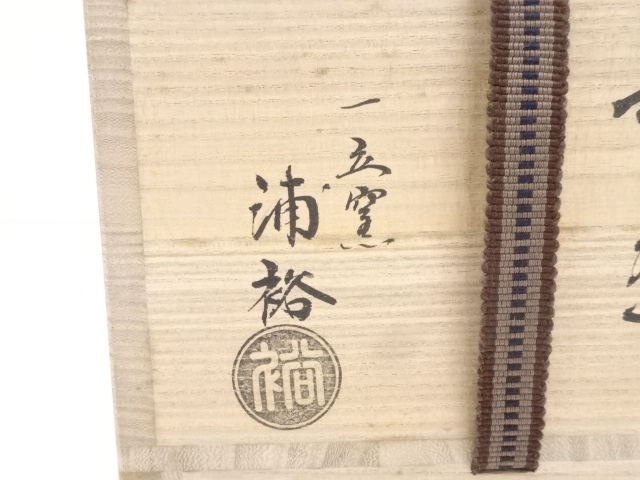 一立窯
浦裕
裕